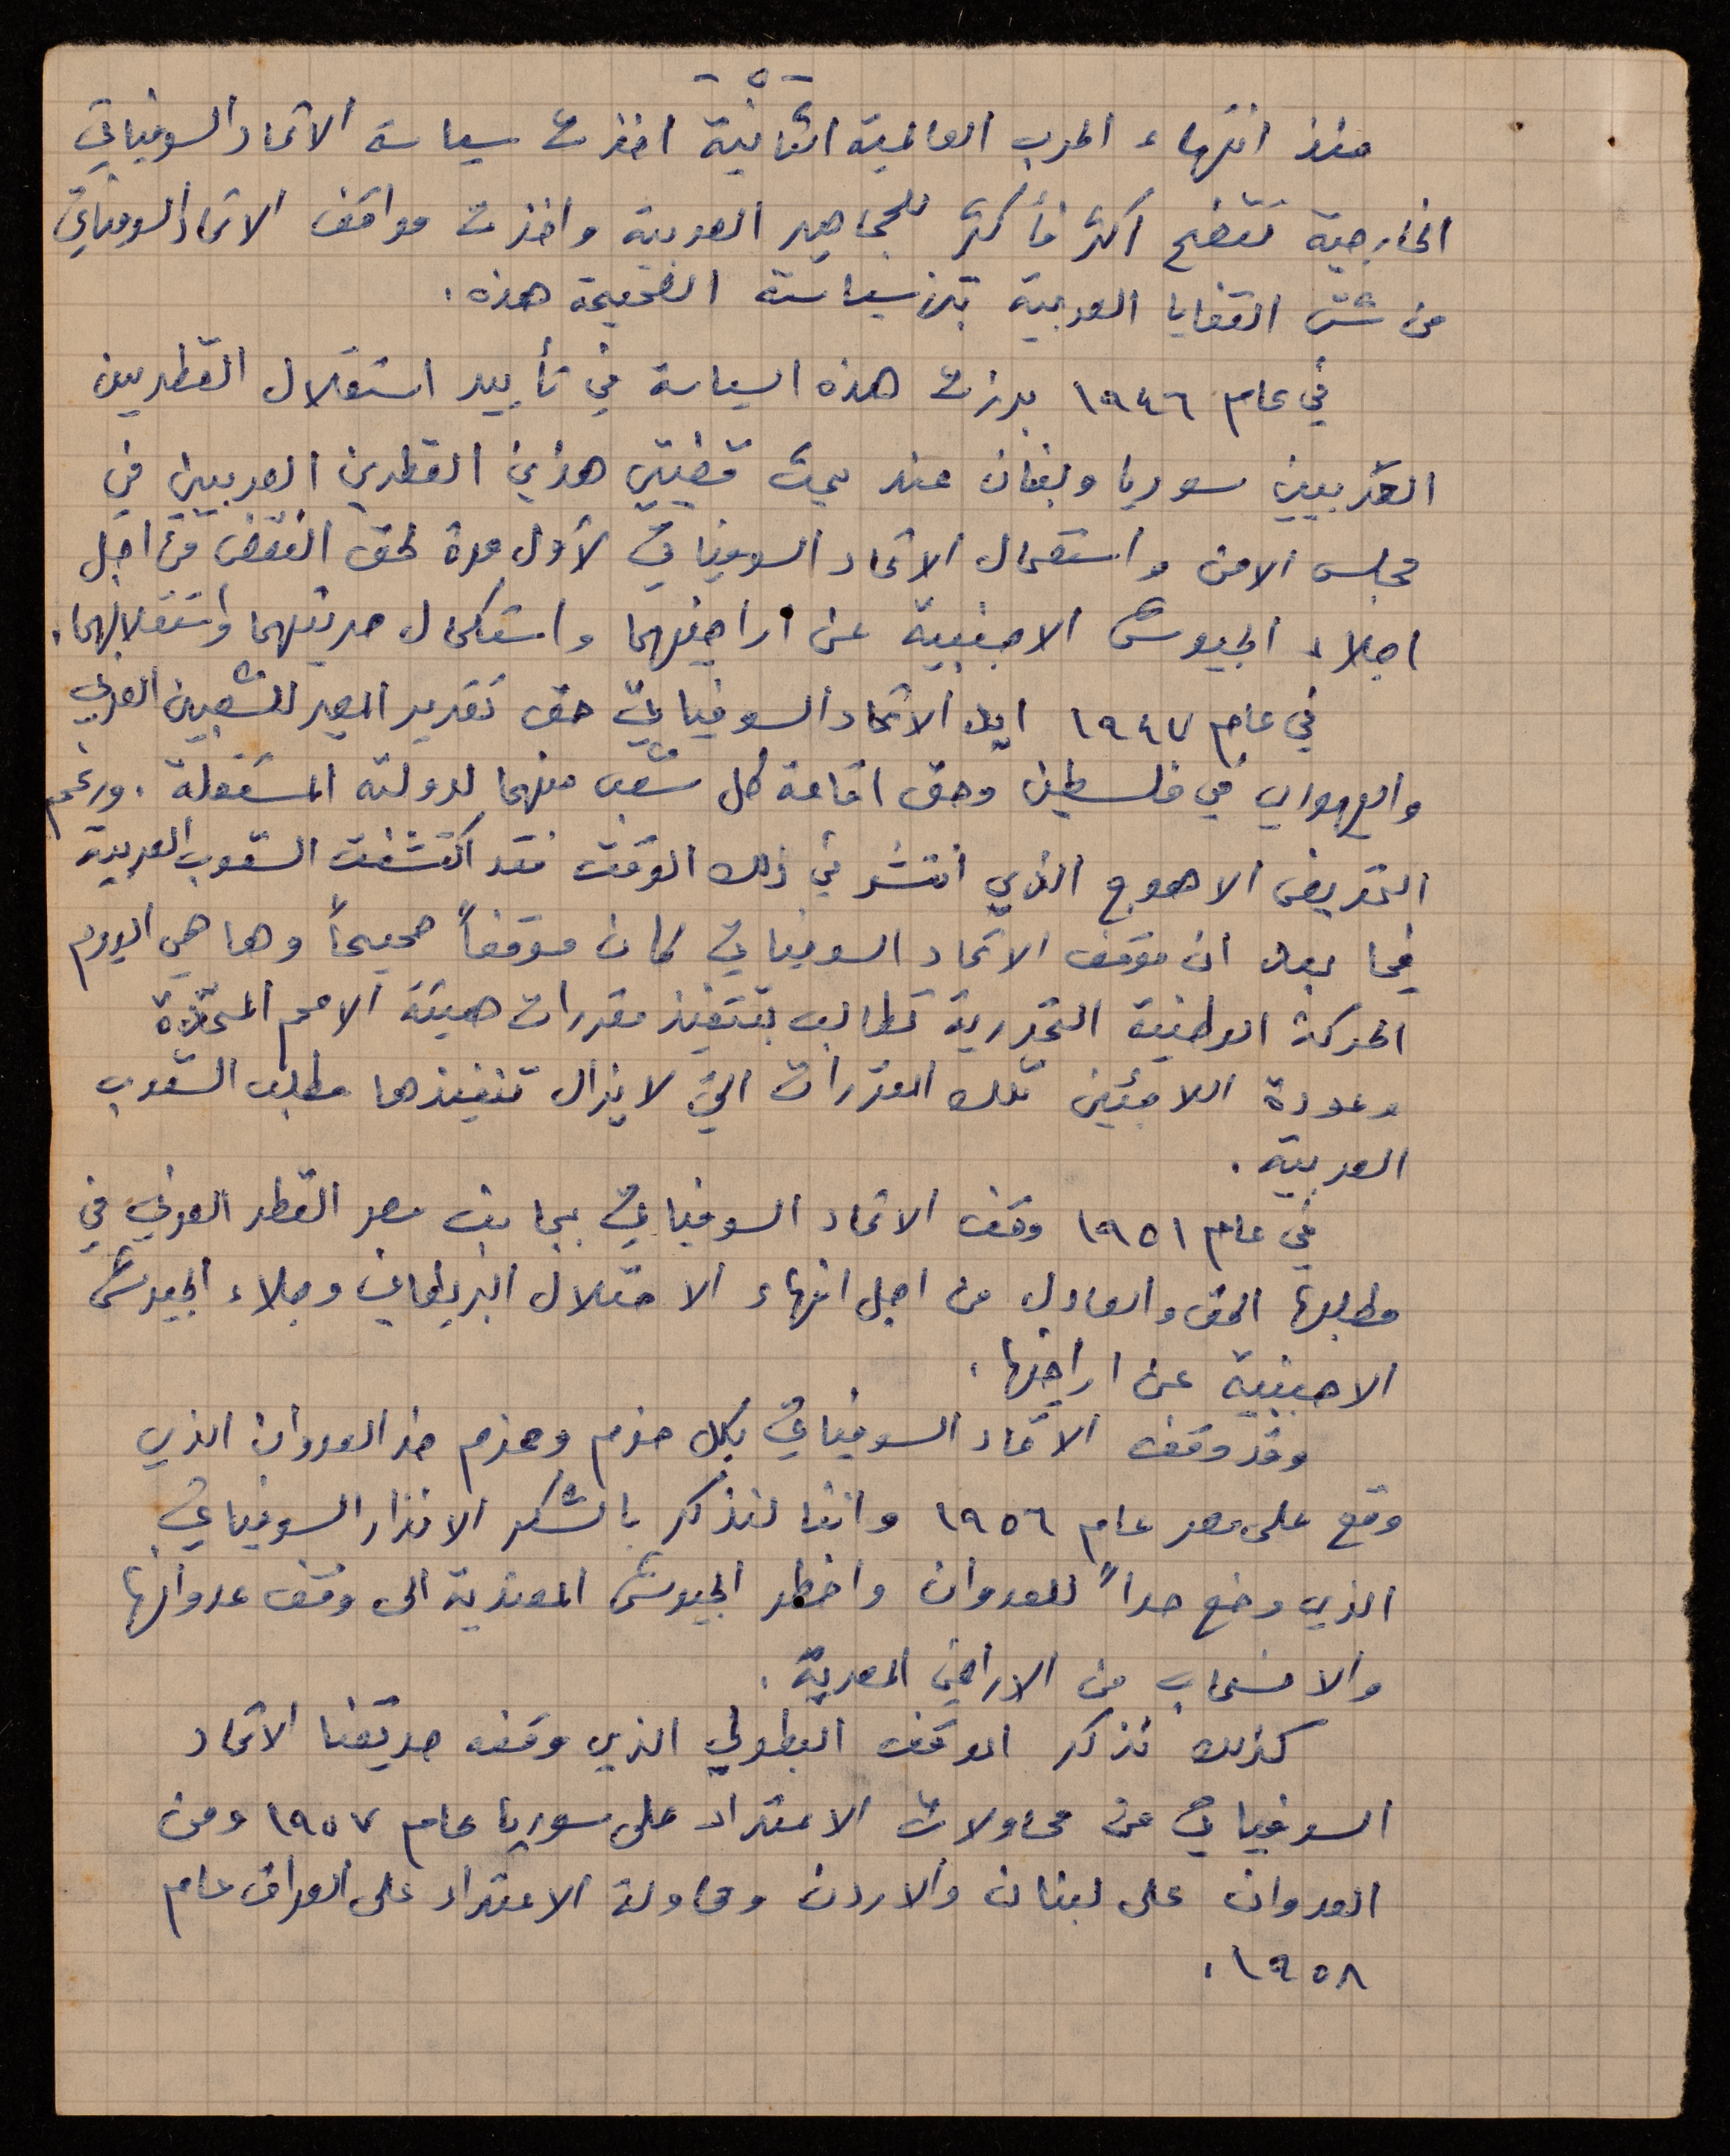 - ٥ -
منذ انتهاء الحرب العالمية الثانية اخذت سياسة الاتحاد السوفياتي
الخارجية تتضح أكثر فأكثر للجماهير العربية واخذت مواقف الاتحاد السوفياتي
من شتى القضايا العربية تبرز سياسته الصحيحة هذه .
في عام ١٩٤٦ برزت هذه السياسة في تأييد استقلال القطريين
العربيين سوريا ولبنان عند بحث قضيتي هذين القطرين العربيين في
مجلس الامن واستعمال الاتحاد السوفياتي لأول مرة لحق النقض من اجل
اجلاء الجيوش الاجنبية عن اراضيهما واستكمال حريتهما واستقلالهما .
في عام ١٩٤٧ ايد الاتحاد السوفياتي حق تقرير المصير للشعبين العربي
واليهودي في فلسطين وحق اقامة كل شعب منهما لدولته المستقلة . ورغم
التحريض الاهوج الذي انتشر في ذلك الوقت فقد اكتشفت الشعوب العربية
فيما بعد ان موقف الاتحاد السوفياتي كان موقفاً صحيحاً وها هي اليوم
الحركة الوطنية التحررية تطالب بتنفيذ مقررات هيئة الامم المتحدة
وعودة اللاجئين تلك المقررات التي لا يزال تنفيذها مطلب الشعوب
العربية .
في عام ١٩٥١ وقف الاتحاد السوفياتي بجانب مصر القطر العربي في
مطلبها الحق والعادل من اجل انهاء الاحتلال البريطاني وجلاء الجيوش
الاجنبية عن اراضيها .
وقد وقف الاتحاد السوفياتي بكل حزم وعزم ضد العدوان الذي
وقع على مصر عام ١٩٥٦ واننا لنذكر بالشكر الانذار السوفياتي
الذي وضع حداً للعدوان واضطر الجيوش المعتدية الى وقف عدوانها
والانسحاب من الاراضي المصرية .
كذلك نذكر الموقف البطولي الذي وقفه صديقنا الاتحاد
السوفياتي من محاولات الاعتداء على سوريا عام ١٩٥٧ ومن
العدوان على لبنان والاردن ومحاولة الاعتداء على العراق عام
١٩٥٨ .